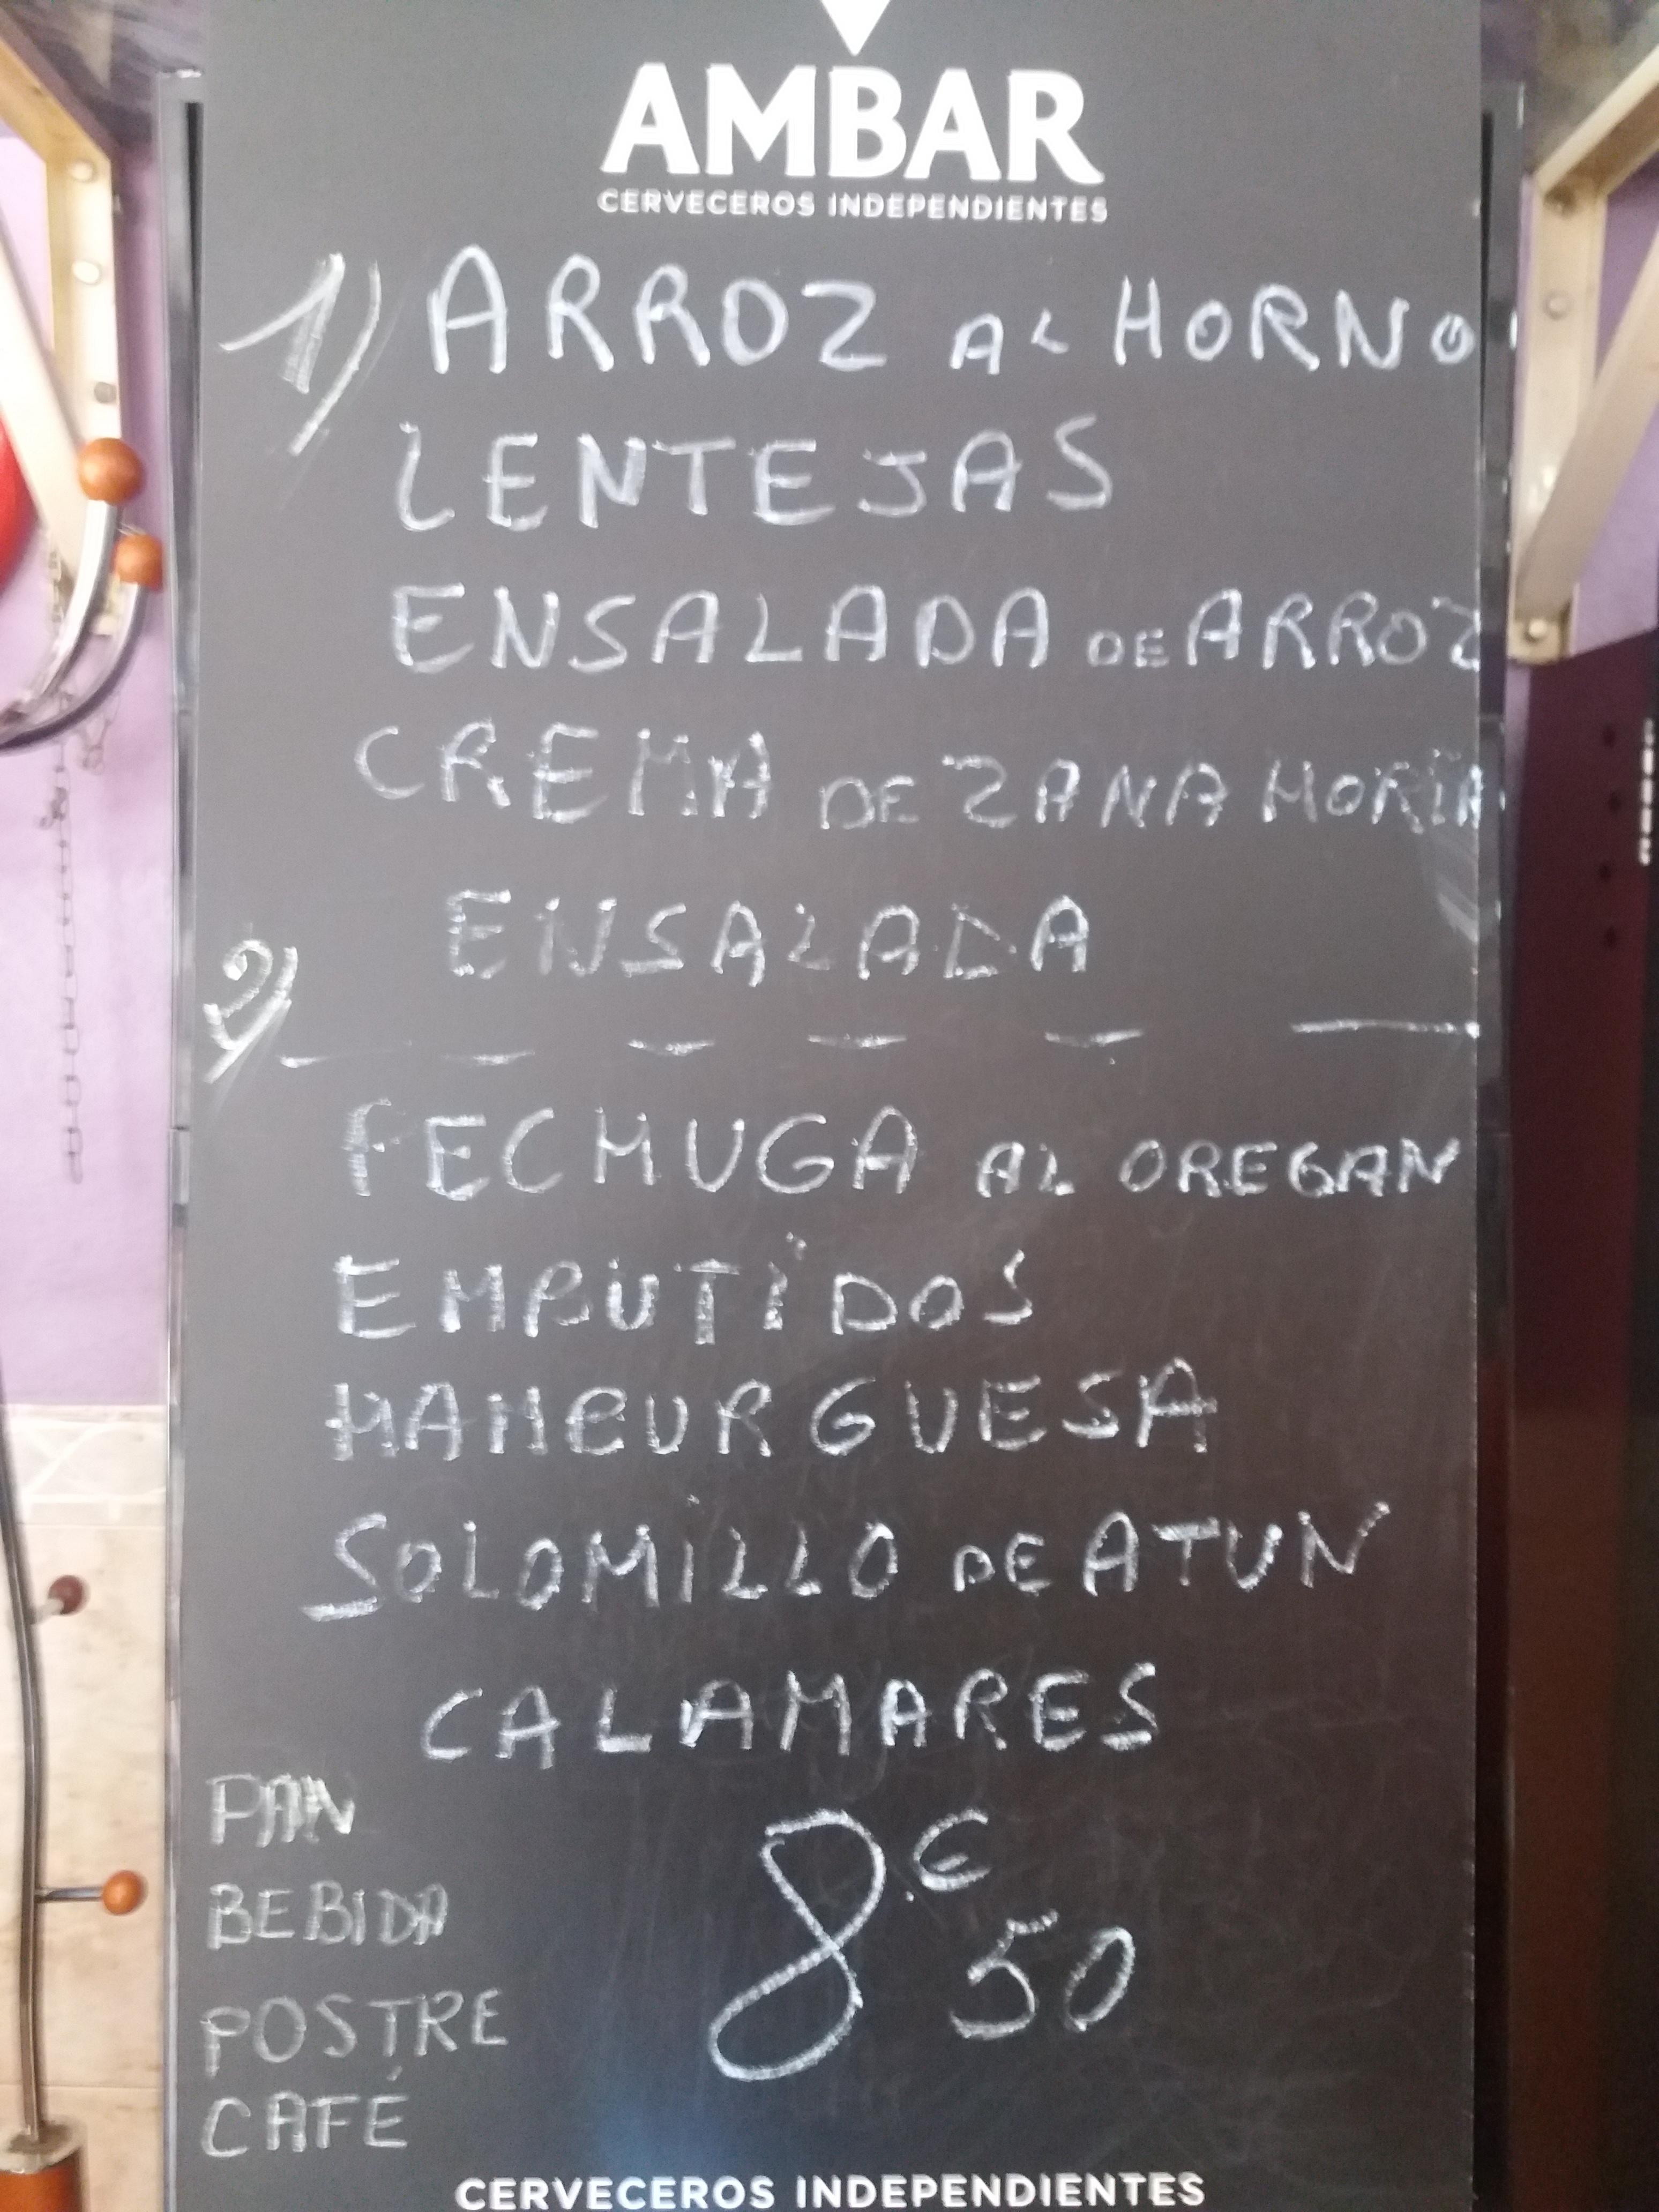 AMBAR
CERVECEROS INDEPENDIENTES
1) ARROZ AL HORNO
LENTEJAS
ENSALADA DE ARROZ
CREMA DE ZANAHORIA
ENSALADA
2)
PECHUGA AL OREGAN
EMBUTIDOS
HAMBURGUESA
SOLOMILLO DE ATUN
CALAMARES
PAN
BEBIDA
POSTRE
CAFÉ
8.€50
CERVECEROS INDEPENDIENTES